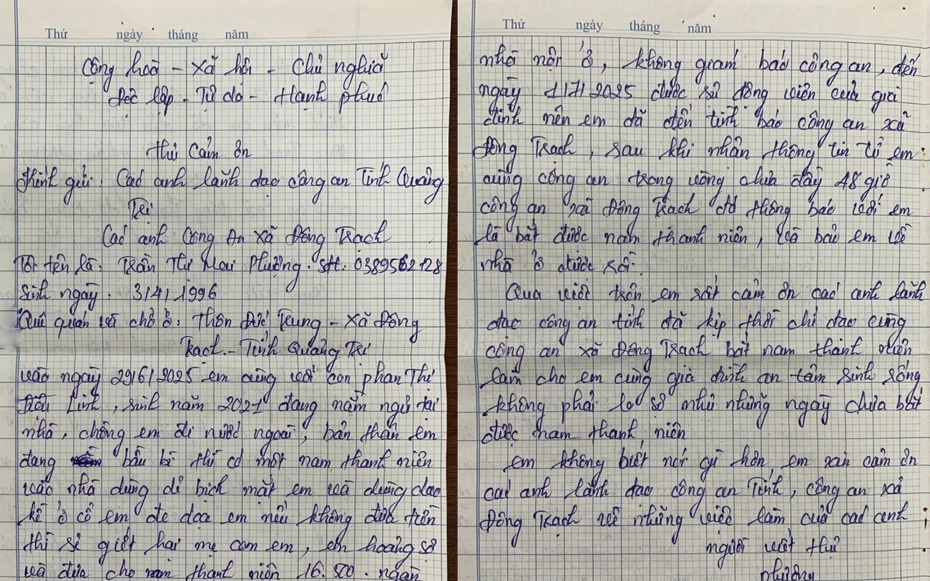 Thứ ngày tháng năm
Cộng hoà - Xã hội - Chủ nghĩa
Độc lập - Tự do - Hạnh phúc
Thư Cảm ơn
Kính gửi: Các anh lãnh đạo công an Tỉnh Quảng
Trị
Các anh Công An Xã Đông Trạch
Tôi tên là: Trần Thị Mai Phương. Sđt: 0389562128
Sinh ngày: 3/4/1996
Quê quán và chỗ ở: Thôn Đức Trung - Xã Đông
Trạch - Tỉnh Quảng Trị
vào ngày 29/6/2025 em cùng với con phan Thị
Linh, sinh năm 2021 đang nằm ngủ tại
nhà, chồng em đi nước ngoài, bản thân em
đang bầu bì thì có một nam thanh niên
vào nhà dùng dỉ bịch mặt em và dùng dao
kề ở cổ em đe doạ em nếu không đưa tiền
thì sẽ giết hai mẹ con em, em hoảng sợ
và đưa cho nam thanh niên 16.500. ngàn
Thứ ngày tháng năm
nhà nội ở, không giám báo công an, đến
ngày 1/7/2025 được sự động viên của gia
đình nên em đã đến trình báo công an xã
Đông Trạch, sau khi nhận thông tin từ em
cùng công an trong vòng chưa đầy 48 giờ
công an xã Đông Trạch đã thông báo với em
là bắt được nam thanh niên, và bảo em về
nhà ở được rồi.
Qua việc trên em rất cảm ơn các anh lãnh
đạo công an tỉnh đã kịp thời chỉ đạo cùng
công an xã Đông Trạch bắt nam thanh niên
làm cho em cùng gia đình an tâm sinh sống
không phải lo sợ như những ngày chưa bắt
được nam thanh niên
em không biết nói gì hơn, em xin cảm ơn
các anh lãnh đạo công an Tỉnh, công an xã
Đông Trạch về những việc làm của các anh
người viết thư
phương